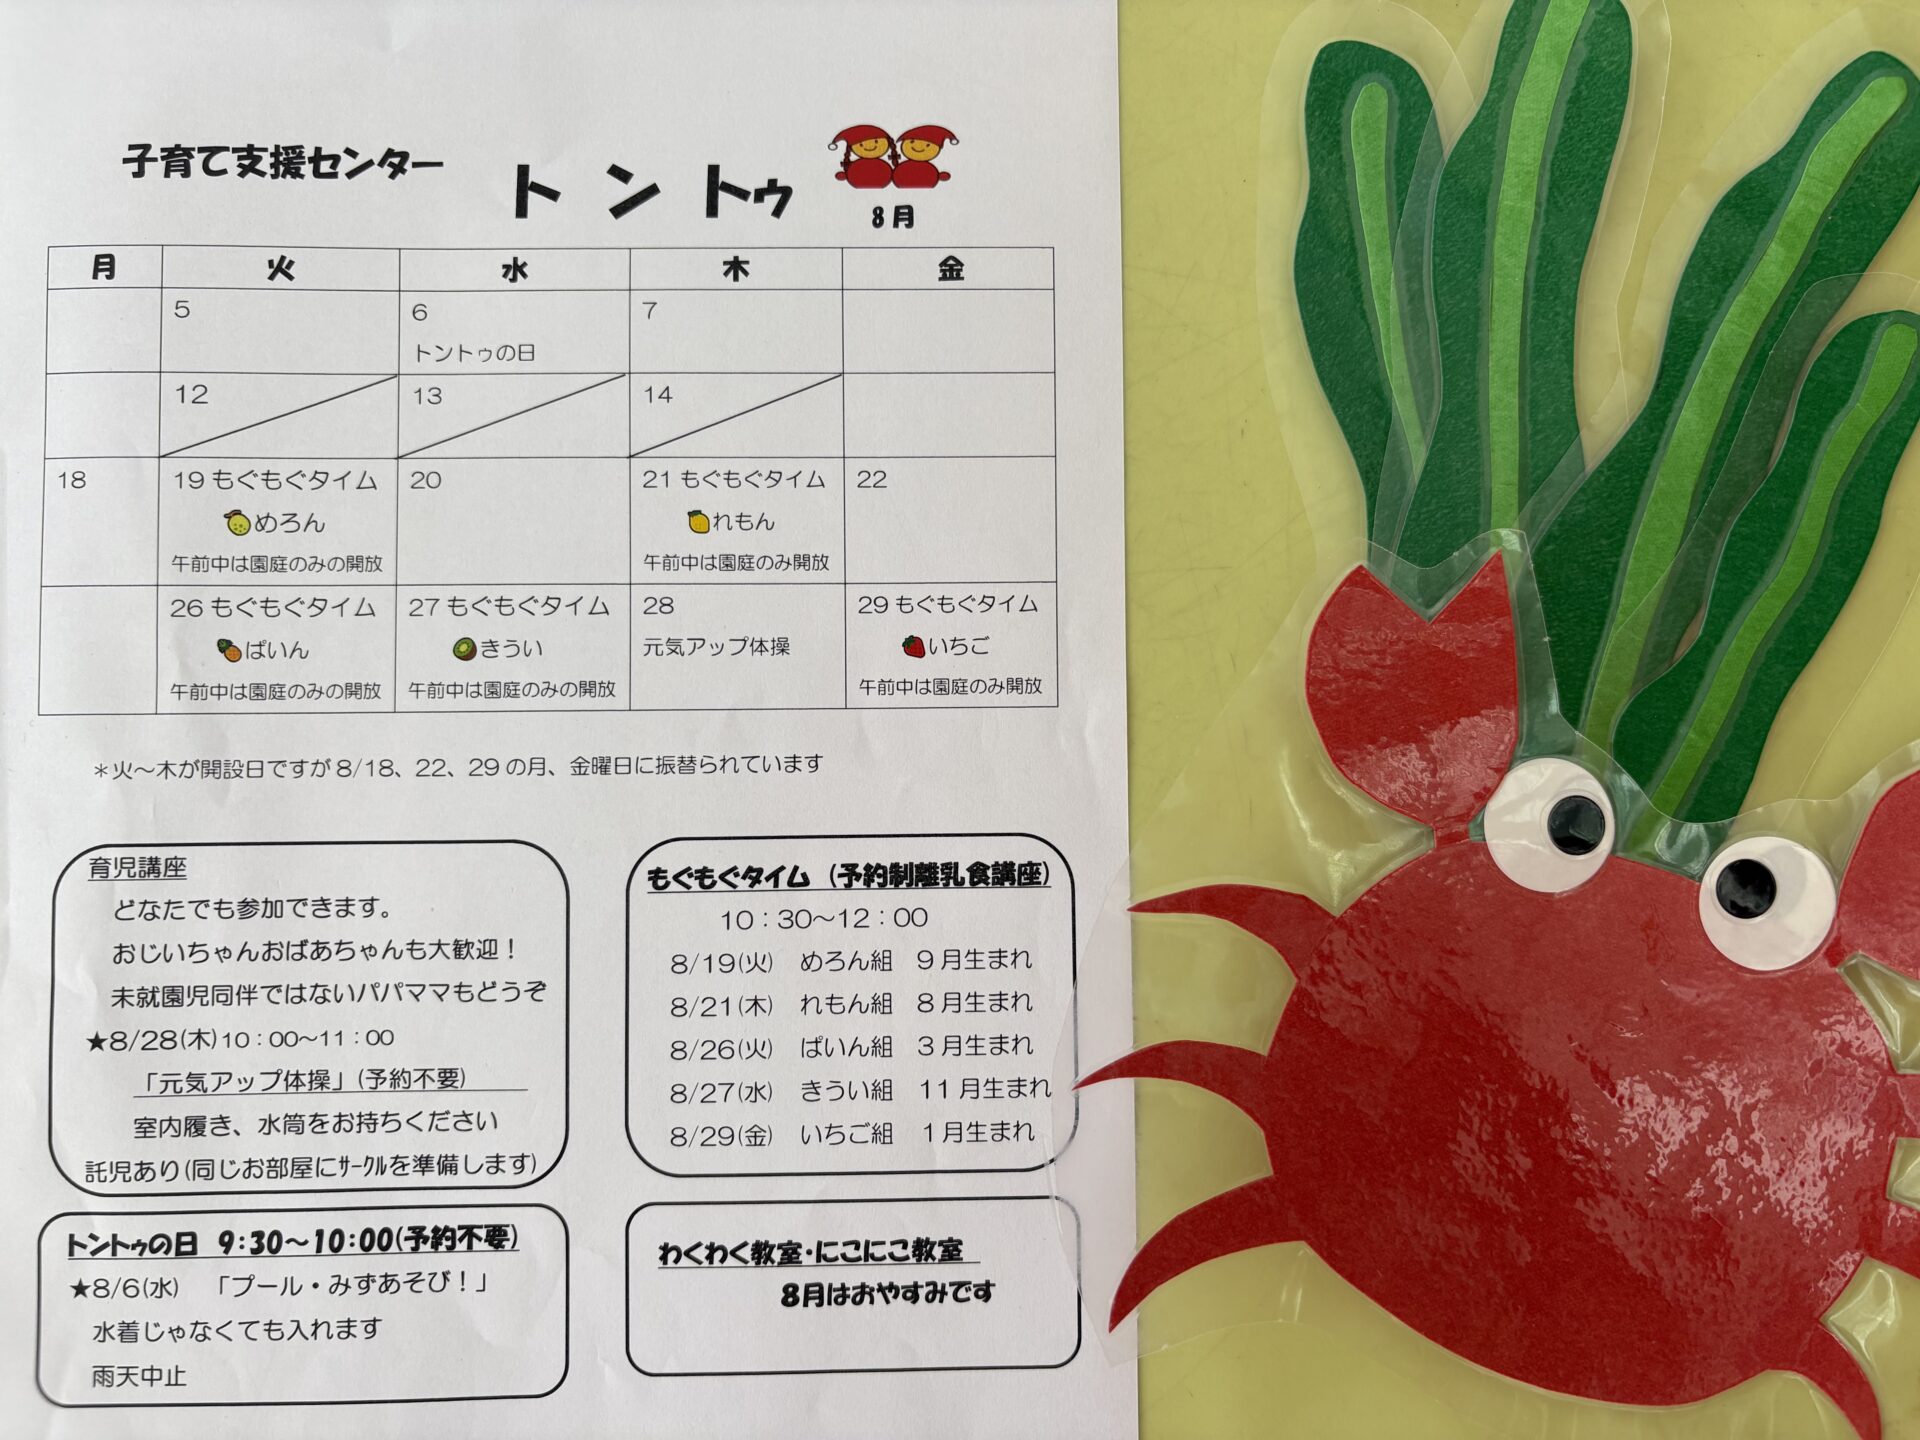 子育て支援センター トントゥ
8月
月 火 水 木 金
5 6 7
トントゥの日
12 13 14
18 19 もぐもぐタイム 20 21 もぐもぐタイム 22
めろん れもん
午前中は園庭のみの開放 午前中は園庭のみ開放
26 もぐもぐタイム 27 もぐもぐタイム 28 29 もぐもぐタイム
ぱいん きうい 元気アップ体操 いちご
午前中は園庭のみの開放 午前中は園庭のみの開放 午前中は園庭のみ開放
＊火～木が開設日ですが 8/18、22、29 の月、金曜日に振替られています
育児講座
どなたでも参加できます。
おじいちゃんおばあちゃんも大歓迎！
未就園児同伴ではないパパママもどうぞ
★8/28(木)10：00～11：00
「元気アップ体操」(予約不要)
室内履き、水筒をお持ちください
託児あり(同じお部屋にｻｰｸﾙを準備します)
もぐもぐタイム（予約制離乳食講座）
10：30～12：00
8/19(火) めろん組 9月生まれ
8/21(木) れもん組 8月生まれ
8/26(火) ぱいん組 3月生まれ
8/27(水) きうい組 11月生まれ
8/29(金) いちご組 1月生まれ
トントゥの日 9:30～10:00(予約不要)
★8/6(水) 「プール・みずあそび！」
水着じゃなくても入れます
雨天中止
わくわく教室・にこにこ教室
8月はおやすみです